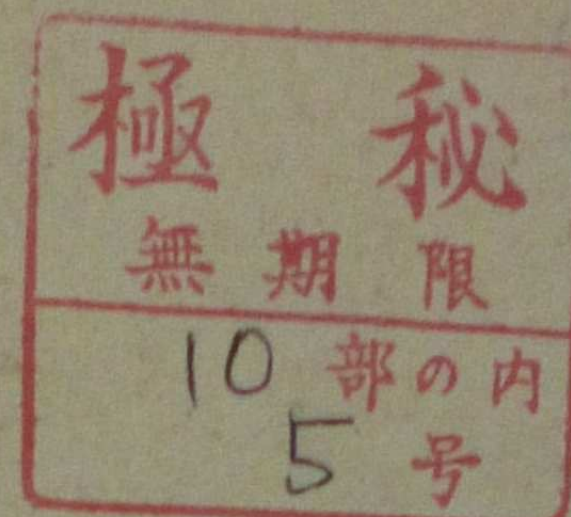 極秘
無期限
10部の内
5号